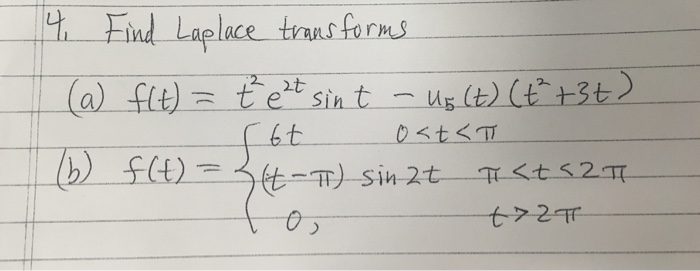 4. Find Laplace transforms
(a) f(t) = t² e^{2t} sin t − u₅(t)(t² + 3t)
(b) f(t) = { 6t 0<t<π
(t−π) sin 2t π<t≤2π
0, t>2π